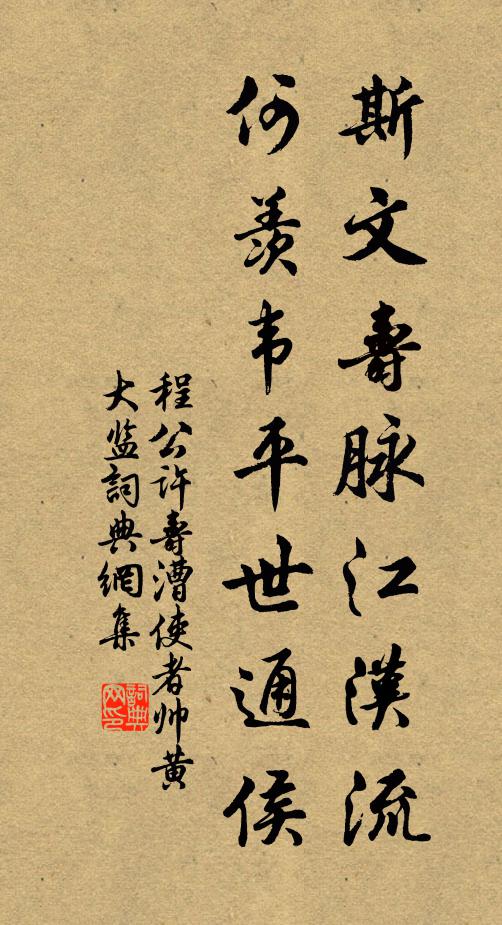 斯文壽脉江漢流
何羨韦平世通侯
程公许壽漕使者帅黄
大监詞典網集
詞典网印